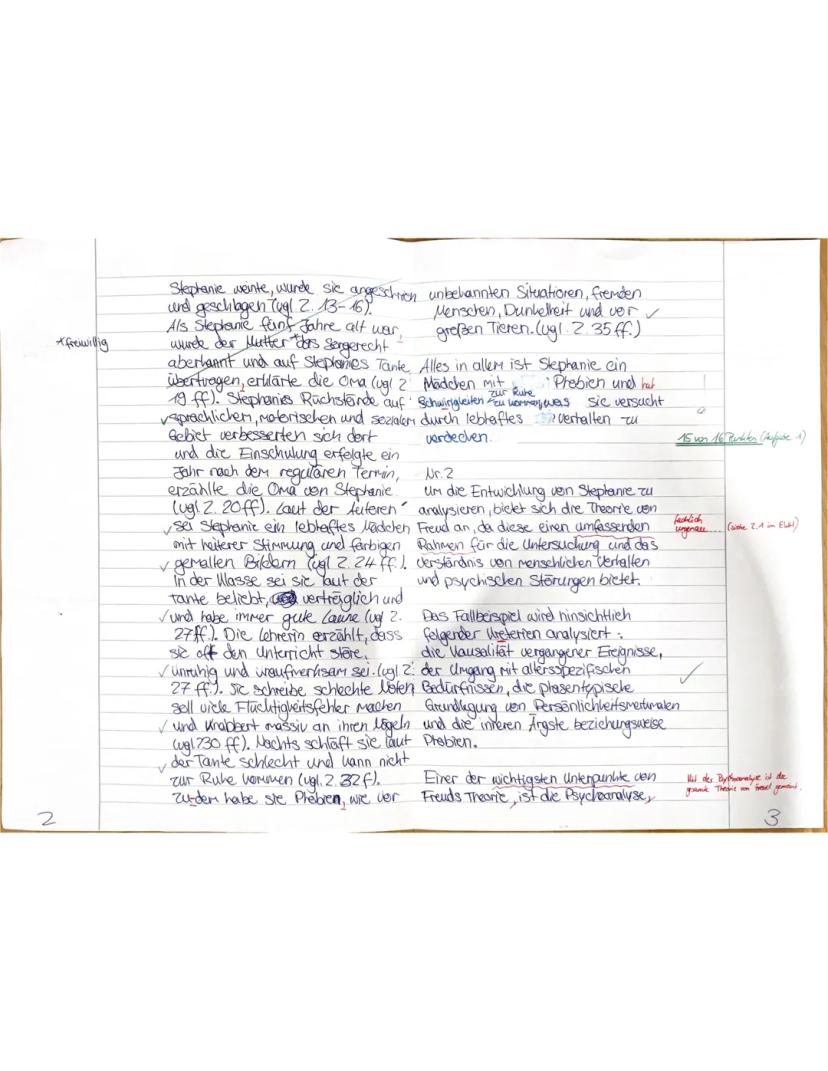 Stephanie weinte, wurde sie angeschrien
und geschlagen (vgl. Z. 13-16).
Als Stephanie fünf Jahre alt war,
wurde der Mutter * das Sorgerecht
* freiwillig
aberkannt und auf Stephanies Tante
übertragen, erklärte die Oma (vgl Z
19 ff). Stephanies Rückstände auf
sprachlichem, motorischen und sozialem
Gebiet verbesserten sich dort
und die Einschulung erfolgte ein
Jahr nach dem regulären Termin,
erzählte die Oma von Stephanie
(vgl. Z. 20ff). Laut der Autoren
sei Stephanie ein lebhaftes Mädchen
mit heiterer Stimmung und farbigen
gemalten Bildern (vgl Z. 24 ff.).
In der Klasse sei sie laut der
Tante beliebt, verträglich und
und habe immer gute Laune (vgl Z.
27ff.). Die Lehrerin erzählt, dass
sie oft den Unterricht störe,
unruhig und unaufmerksam sei. (vgl Z.
27 ff.). Sie schreibe schlechte Noten
soll viele Flüchtigkeitsfehler machen
und knabbert massiv an ihren Nägeln
(vgl Z30 ff). Nachts schläft sie laut
der Tante schlecht und kann nicht
zur Ruhe kommen (vgl. Z. 32f).
Zudem habe sie Phobien, wie vor
2
unbekannten Situationen, fremden
Menschen, Dunkelheit und vor
großen Tieren. (vgl. Z. 35 ff.)
Alles in allem ist Stephanie ein
Mädchen mit Phobien und hat
Schwirigkeiten zur Ruhe zu kommen, was sie versucht
durch lebhaftes Verhalten zu
verdecken.
15 von 16 Punkten (Aufgabe 1)
Nr. 2
Um die Entwicklung von Stephanie zu
analysieren, bietet sich die Theorie von
Freud an, da diese einen umfassenden
fachlich
ungenau (siehe 2.1 im EWH)
Rahmen für die Untersuchung und das
Verständnis von menschlichen Verhalten
und psychischen Störungen bietet.
Das Fallbeispiel wird hinsichtlich
folgender Kreterien analysiert:
die Kausalität vergangener Ereignisse,
der Umgang mit allersspezifischen
Bedürfnissen, die phasentypische
Grundlegung von Persönlichkeitsmerkmalen
und die inneren Ängste beziehungsweise
Phobien.
Einer der wichtigsten Unterpunkte von
Freuds Theorie, ist die Psychoanalyse,
Mit der Psychoanalyse ist die
gesamte Theorie von Freud gemeint.
3